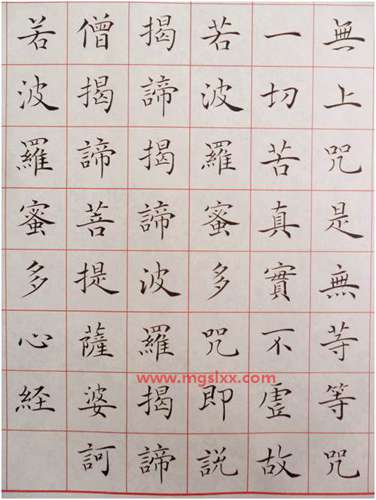 無上咒是無等等咒
一切苦真實不虛故
若波羅蜜多咒即說
揭諦揭諦波羅揭諦
僧揭諦菩提薩婆訶
若波羅蜜多心経
www.mgslxx.com